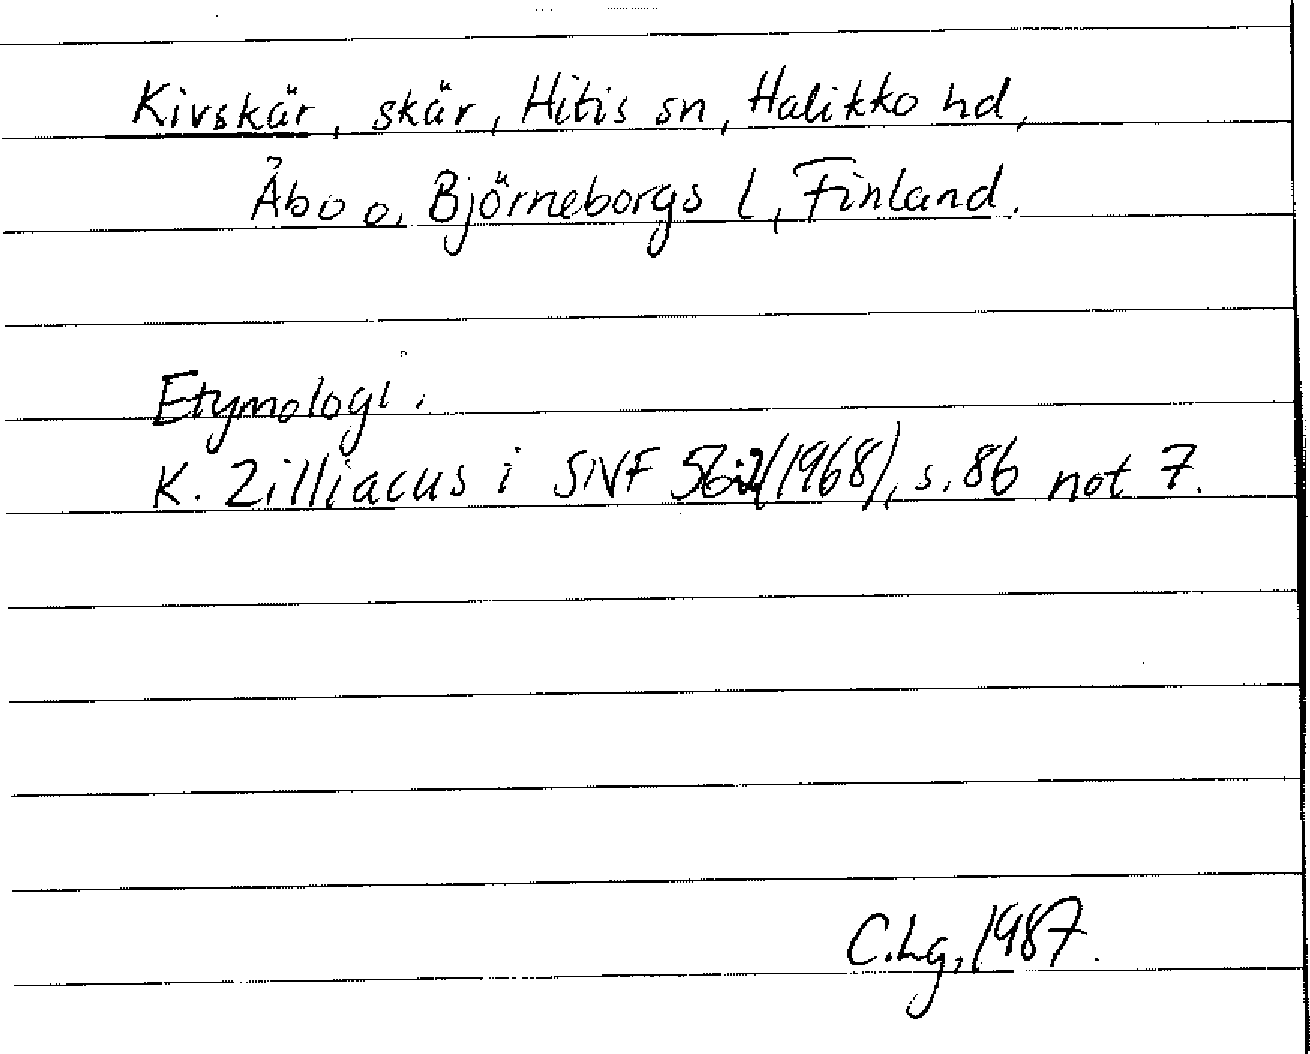 Kivskär, skär, Hitis sn, Halikko hd,
Åbo o. Björneborgs l, Finland.
Etymologi.
K. Zilliacus i SNF 56:2(1968), s. 86 not 7.
C.Lg, 1987.